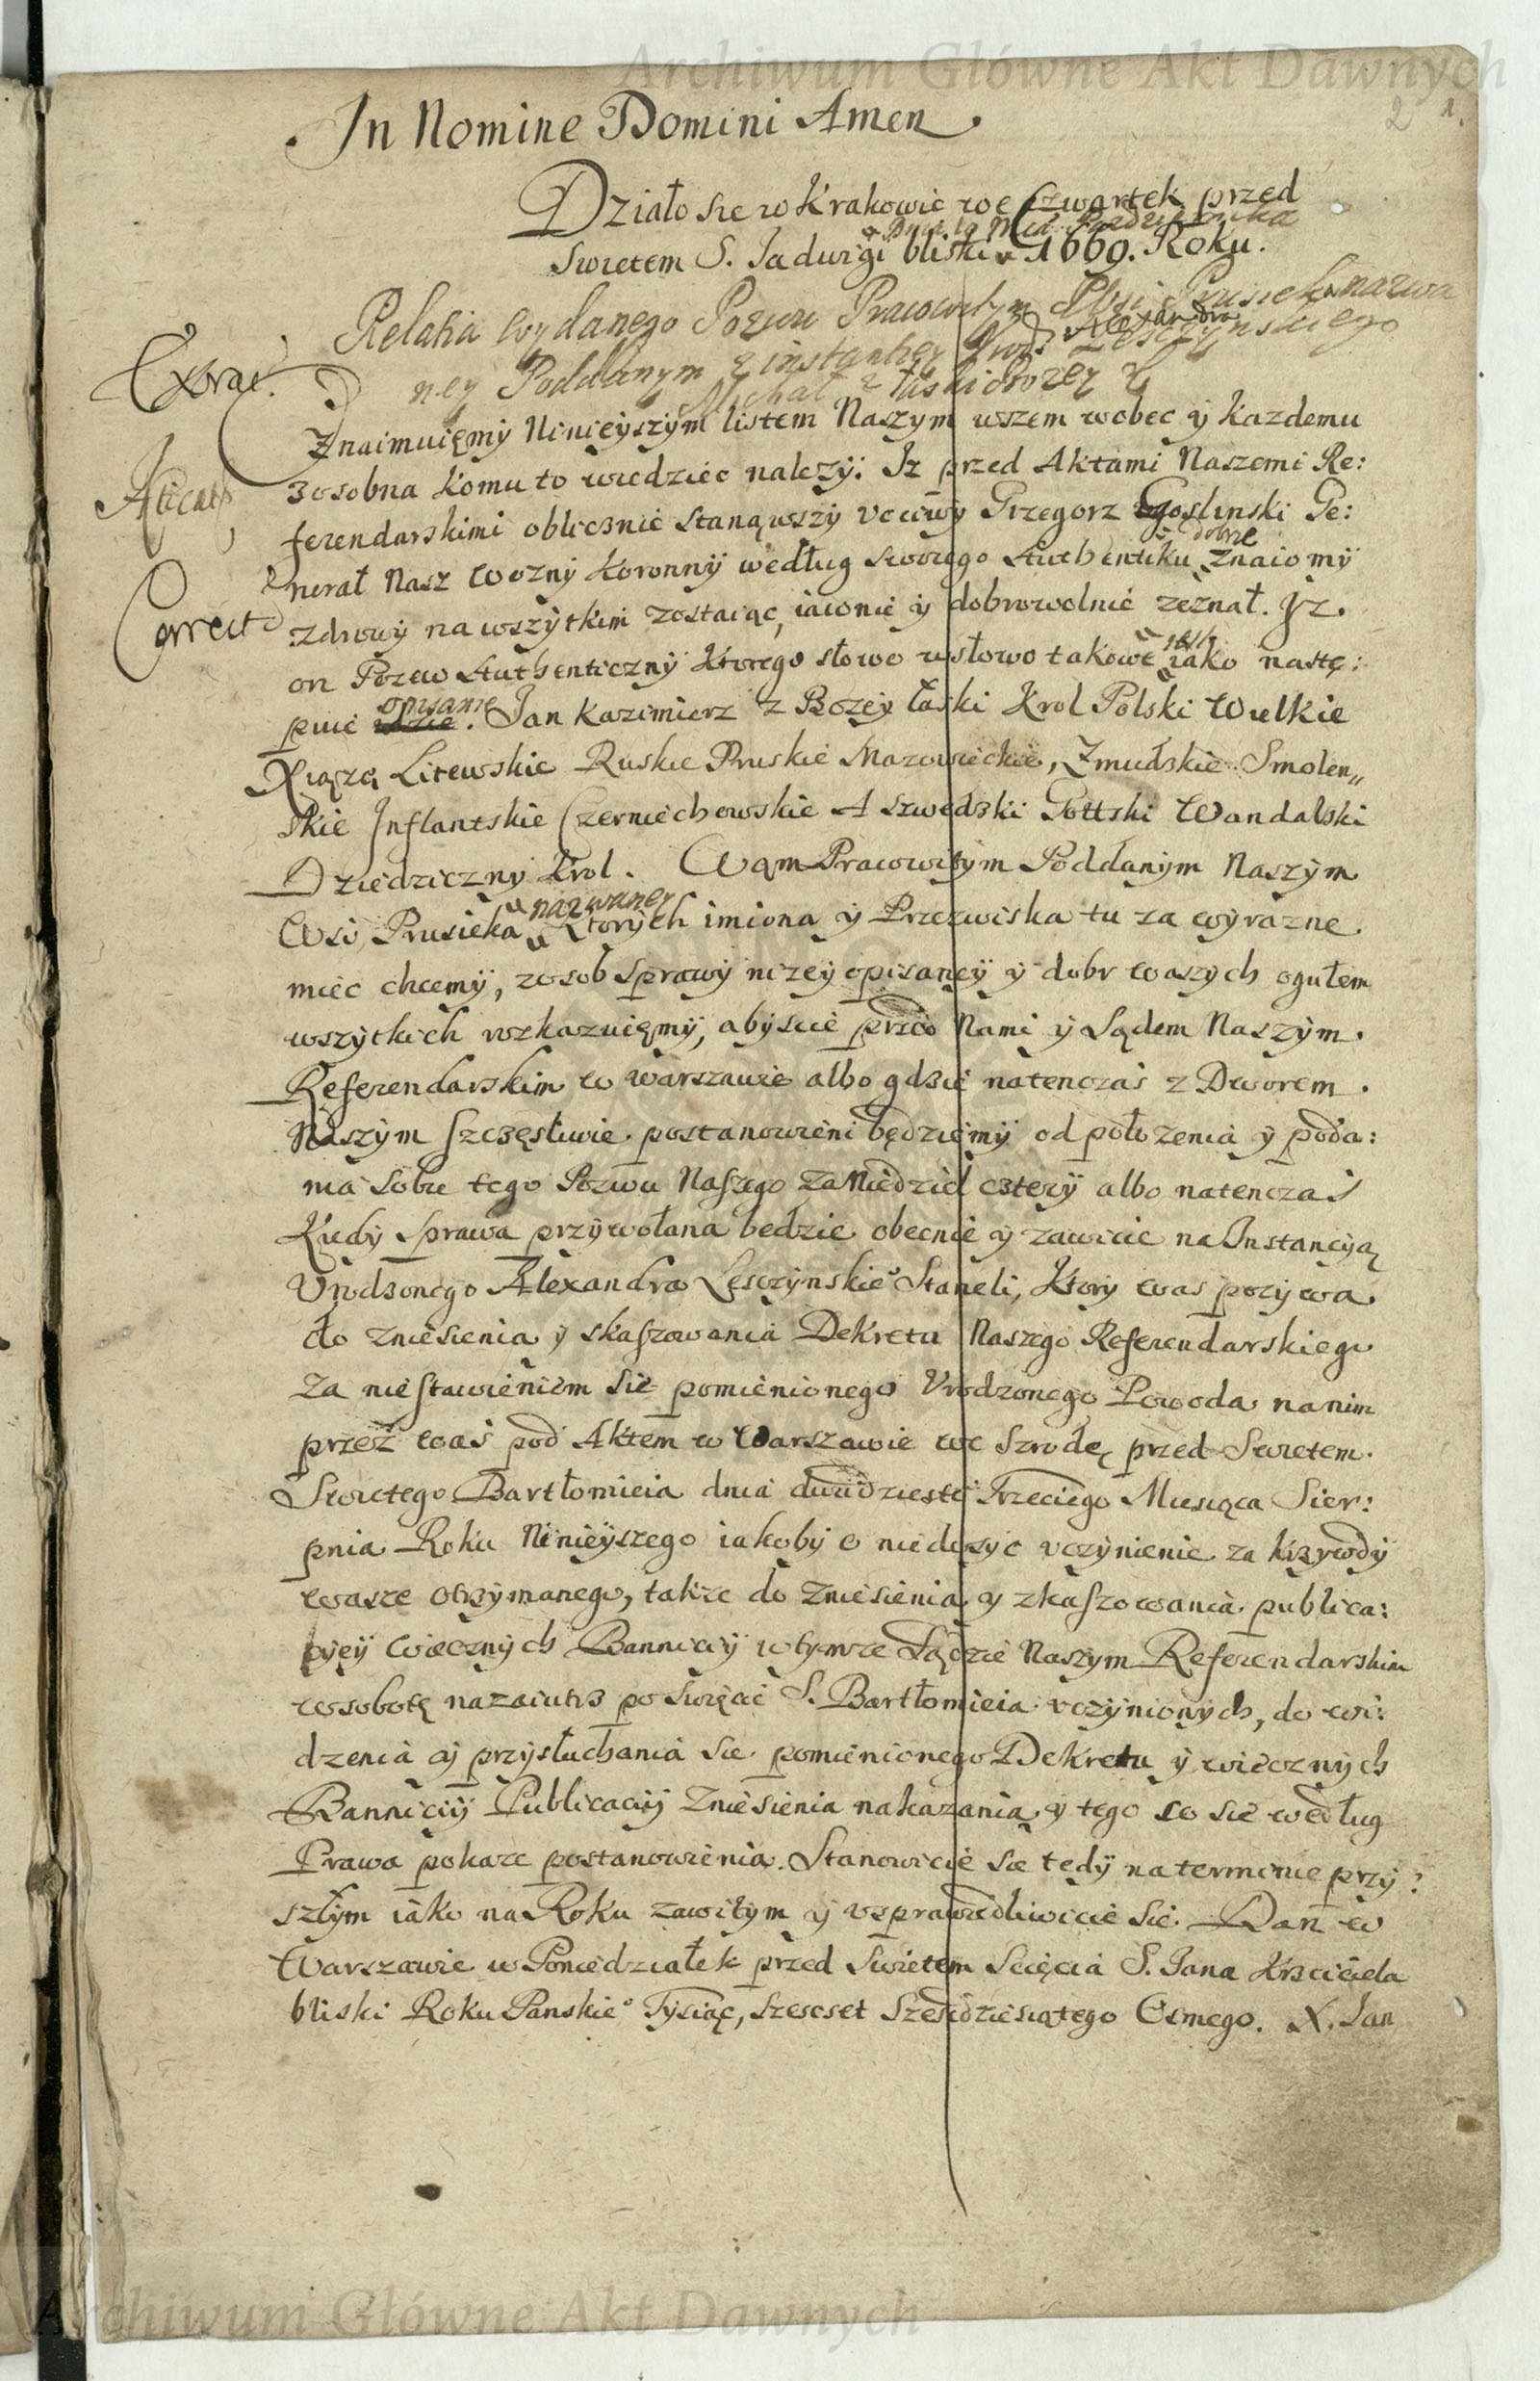 Archiwum Główne Akt Dawnych
2 1.
In Nomine Domini Amen
Działo sie w Krakowie we Czwartek przed
Dnia 10 Msca Pazdziernika
Swietem S. Jadwigi bliski 1669. Roku.
Relatia wydanego Pozwu Pracowitym Wsi Prusieka nazwa
Alexandra
ney Poddanym z instantiey Urodz Lesczynskiego
Michał z łaski Bozey
Extrac.
Znaimuięmy Ninieyszym listem Naszym wszem wobec y kazdemu
zosobna komu to wiedziec nalezy. Iz przed Aktami Naszemi Re:
ferendarskimi oblicznie stanąwszy Vcciwy Grzegorz Goslinski Ge:
dobrze
nerał Nasz Wozny Koronny według swoiego Authentiku znaiomy
Correct
zdrowy na wszytkim zostaiąc, iawnie y dobrowolnie zeznał. Iz.
iest
on Pozew Authenticzny ktorego słowo w słowo takowe iako nastę:
opisanie
puie. Jan Kazimierz z Bozey łaski Krol Polski Wielkie
Xiąze Litewskie Ruskie Pruskie Mazowieckie, Zmudzkie Smolen„
skie Inflantskie Czerniechowskie A Szwedzki Gottski Wandalski
Dziedziczny Krol. Wam Pracowitym Poddanym Naszym
nazwaney
Wsi Prusieka ktorych imiona y Przezwiska tu za wyrazne
miec chcemy, zosob sprawy nizey opisaney y dobr waszych ogułem
wszytkich rozkazuięmy, abyscie przed Nami y Sądem Naszym
Referendarskim w Warszawie albo gdzie natenczas z Dworem
Naszym szczęsliwie postanowieni będziemy od położenia y poda:
nia sobie tego Pozwu Naszego za Niedziel cztery albo natenczas
Kiedy sprawa przywołana bedzie obecnie y zawicie na Instancyą
Vrodzonego Alexandra Lesczynskie° Staneli, Ktory was pozywa
do zniesienia y skaszowania Dekretu Naszego Referendarskiego
za niestawieniem sie pomienionego Vrodzonego Powoda na nim
przez was pod Aktem w Warszawie we Szrodę przed Swietem
Swietego Bartłomieia dnia dwudziestego Trzeciego Miesiąca Sier:
pnia Roku Ninieyszego iakoby o niedosyc vczynienie za krzywdy
wasze otrzymanego, takze do zniesienia y zkaszowania publica:
cyey wiecznych Bannicyi w tymze Sądzie Naszym Referendarskim
w sobotę nazaiutrz po swięcie S. Bartłomieia vczynionych, do wi:
dzenia y przysłuchania sie pomienionego Dekretu y wiecznych
Bannicyi Publicacyi zniesienia nakazania y tego co sie według
Prawa pokaze postanowienia. Stanowcie sie tedy na terminie przy:
szłym iako na Roku zawitym y vsprawiedliwicie sie. Dan w
Warszawie w Poniedziałek przed Swietem Scięcia S. Jana Krzciciela
bliski Roku Panskie° Tysiąc, Szescset Szescdziesiątego Osmego. X. Jan
Archiwum Główne Akt Dawnych